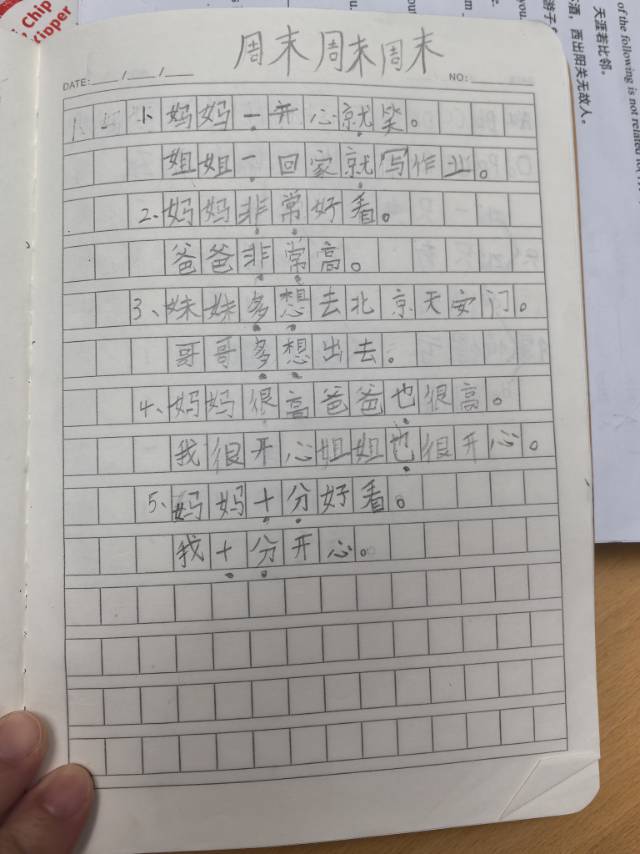 Chip
kipper
of the following is not related to
天涯若比邻。
酒，西出阳关无故人。
周末周末周末
DATE: / /
NO:
1、妈妈一开心就笑。
姐姐一回家就写作业。
2、妈妈非常好看。
爸爸非常高。
3、妹妹多想去北京天安门。
哥哥多想出去。
4、妈妈很高爸爸也很高。
我很开心姐姐也很开心。
5、妈妈十分好看。
我十分开心。